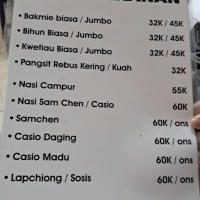 • Bakmie biasa / Jumbo 32K / 45K
• Bihun Biasa / Jumbo 32K / 45K
• Kwetiau Biasa / Jumbo 32K / 45K
• Pangsit Rebus Kering / Kuah 32K
• Nasi Campur 55K
• Nasi Sam Chen / Casio 60K
• Samchen 60K / ons
• Casio Daging 60K / ons
• Casio Madu 60K / ons
• Lapchiong / Sosis 60K / ons